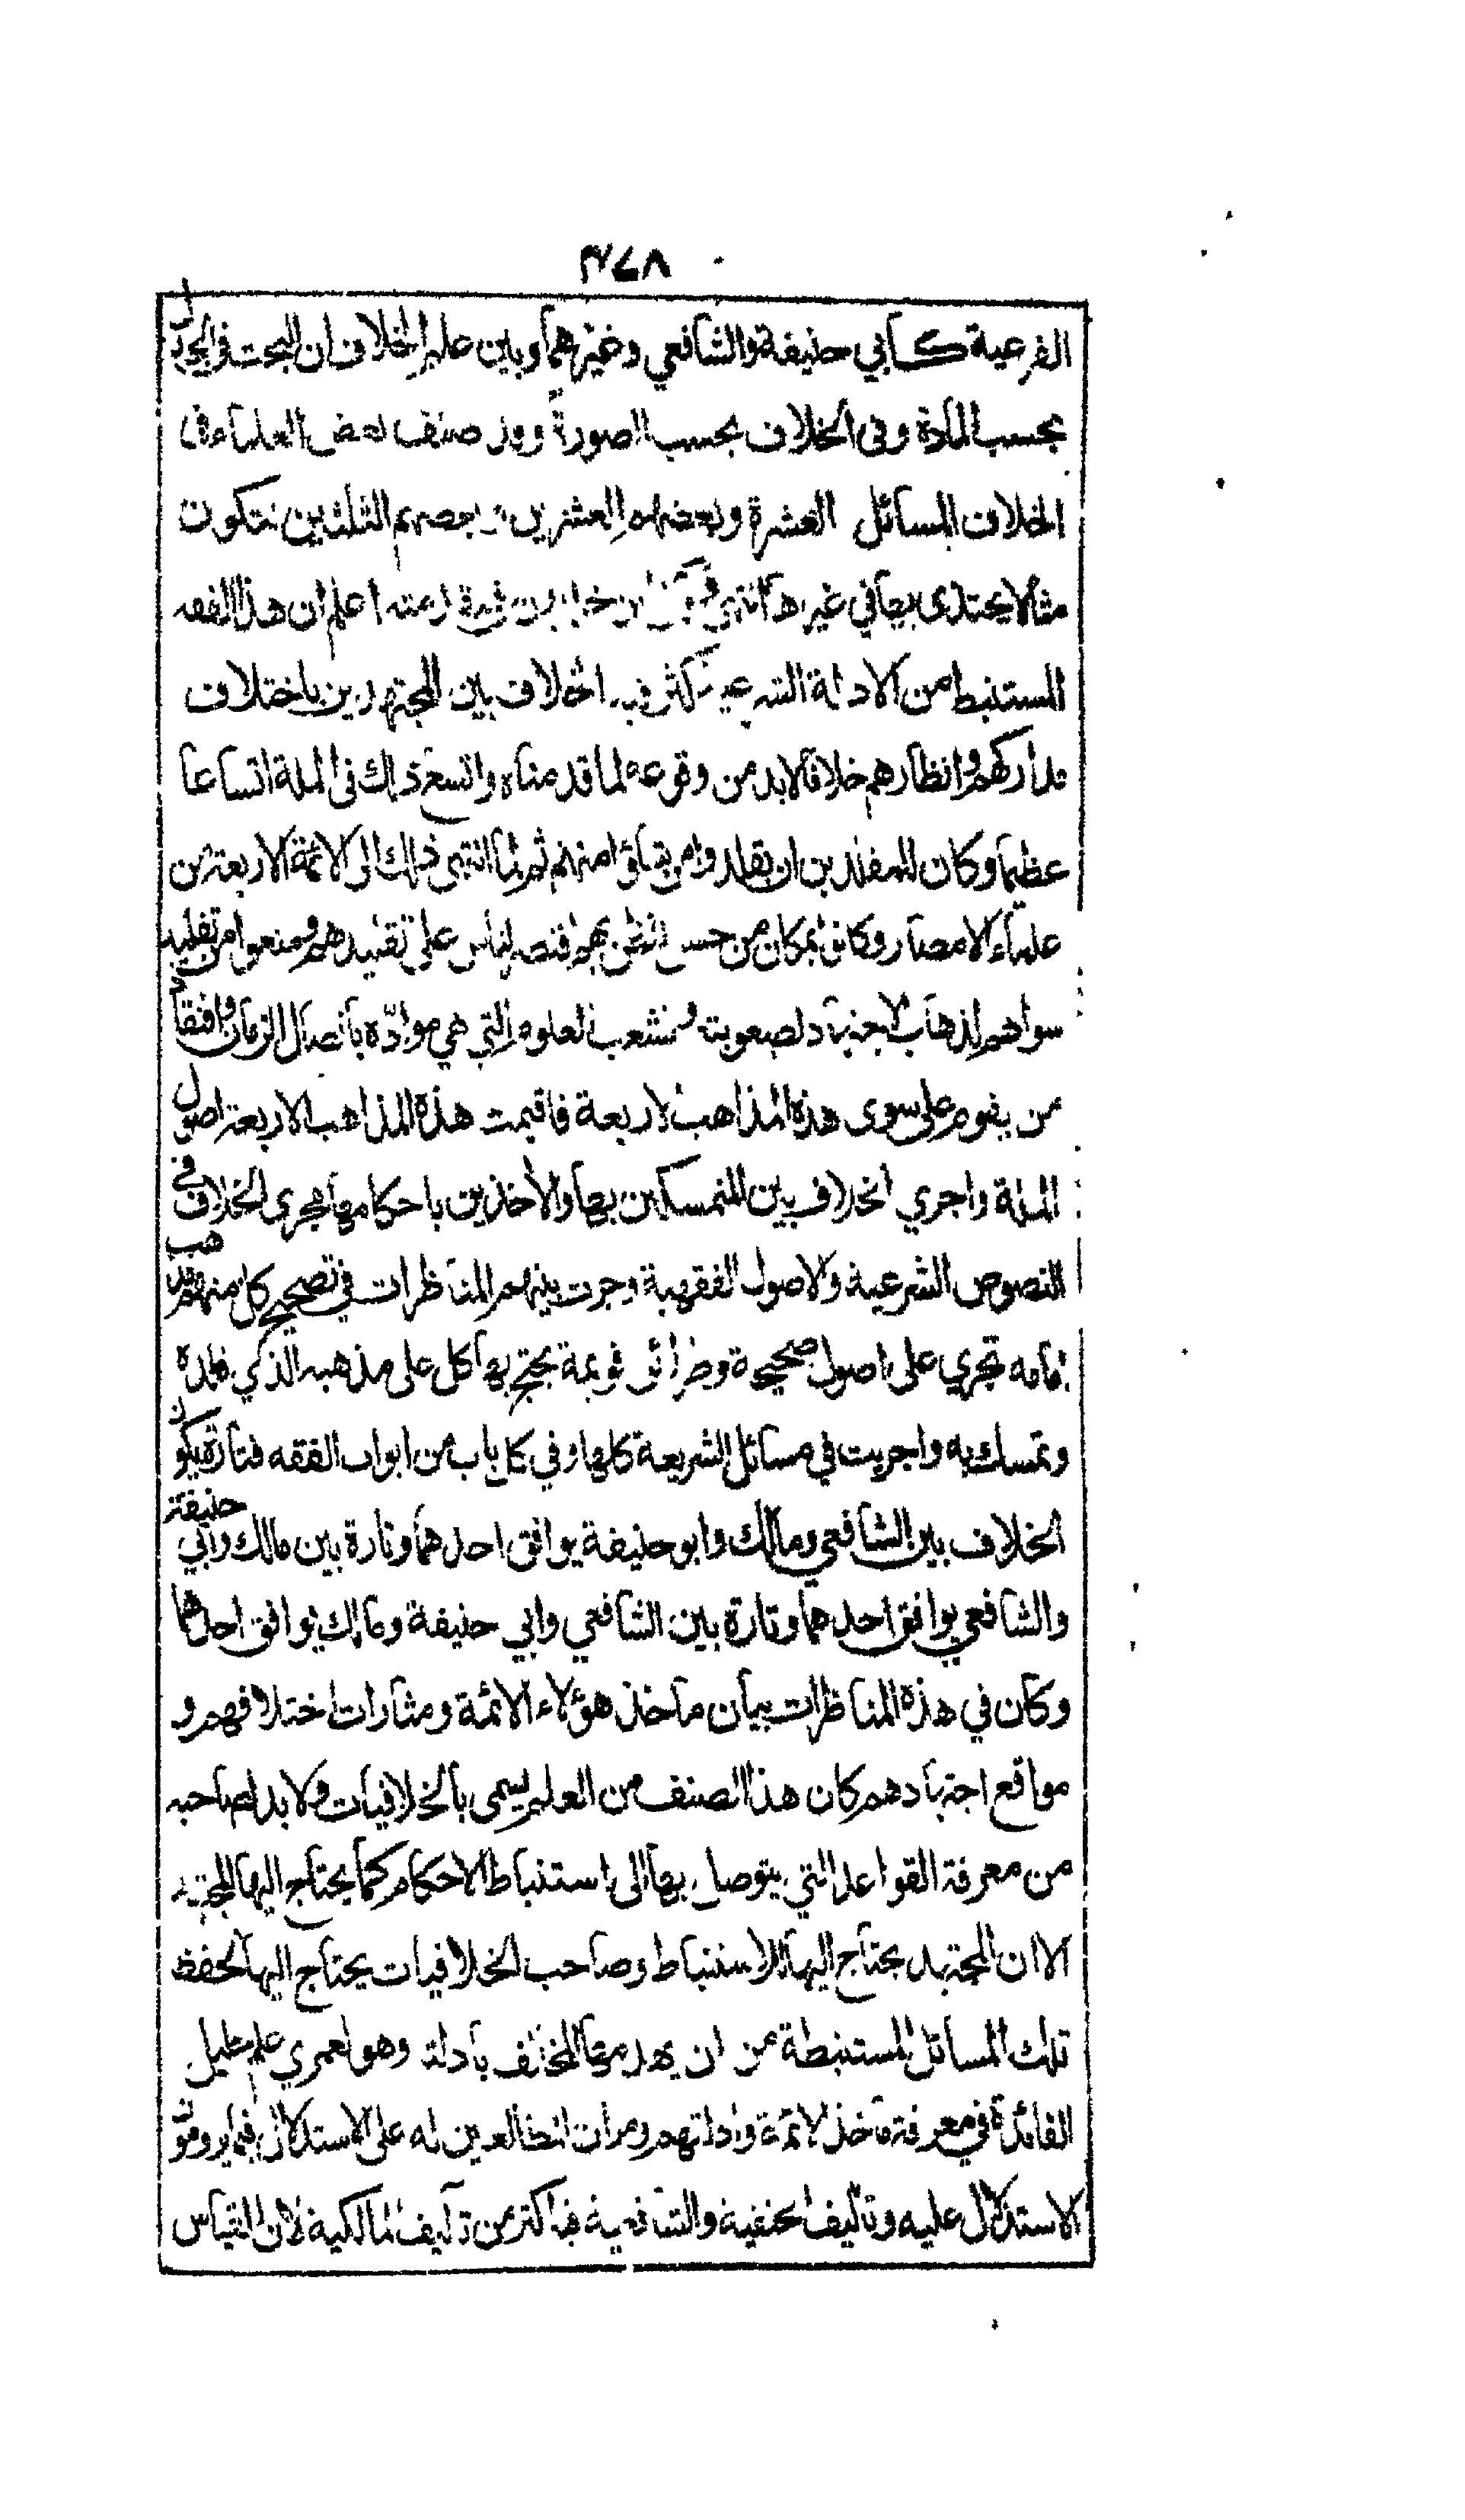 ٣٧٨
الفرعية كأبي حنيفة والشافعي وغيرهما وبين علم الخلاف ان البحث في الجدل
بحسب المادة وفى الخلاف بحسب الصورة وقد صنف بعض العلماء فى
الخلاف المسائل العشرة وبعضهم العشرين وبعضهم الثلثين لتكون
مثالا يحتذى بها في غيرها انتهى وقال ابن خلدون في مقدمته اعلم ان هذا الفقه
المستنبط من الادلة الشرعية كثر فيه الخلاف بين المجتهدين باختلاف
مداركهم وانظارهم خلافا لابد من وقوعه لما قدمناه واتسع ذلك في الملة اتساعا
عظيما وكان للمقلدين ان يقلدوا من شاؤا منهم ثم لما انتهى ذلك الى الائمة الاربعة من
علماء الامصار وكانوا بمكان من حسن الظن بهم اقتصر الناس على تقليدهم ومنعوا من تقليد
سواهم لذهاب الاجتهاد لصعوبته وتشعب العلوم التي هي موادّه باتصال الزمان وافتقاد
من يقوم على سوى هذه المذاهب الاربعة فاقيمت هذه المذاهب الاربعة اصول
الملة واجري الخلاف بين المتمسكين بها والآخذين باحكامها مجرى الخلاف في
النصوص الشرعية والاصول الفقهية وجرت بينهم المناظرات في تصحيح كل منهم مذهب
امامه تجري على اصول صحيحة وطرائق قويمة يحتج بها كل على مذهبه الذي قلده
وتمسك به واجريت في مسائل الشريعة كلها وفي كل باب من ابواب الفقه فتارة يكون
الخلاف بين الشافعي ومالك وابو حنيفة يوافق احدهما وتارة بين مالك وابي حنيفة
والشافعي يوافق احدهما وتارة بين الشافعي وابي حنيفة ومالك يوافق احدهما
وكان في هذه المناظرات بيان مآخذ هؤلاء الائمة ومثارات اختلافهم و
مواقع اجتهادهم كان هذا الصنف من العلم يسمى بالخلافيات ولابد لصاحبه
من معرفة القواعد التي يتوصل بها الى استنباط الاحكام كما يحتاج اليها المجتهد
الا ان المجتهد يحتاج اليها للاستنباط وصاحب الخلافيات يحتاج اليها لحفظ
تلك المسائل المستنبطة من ان يهدمها المخالف بادلته وهو لعمري علم جليل
الفائدة في معرفة مآخذ الائمة وادلتهم ومران المطالعين له على الاستدلال فيما يرومون
الاستدلال عليه وتآليف الحنفية والشافعية فيه اكثر من تآليف المالكية لان القياس